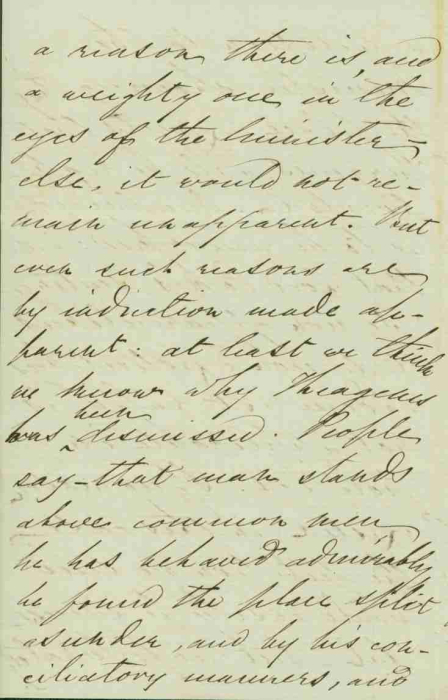 a reason there is, and
a weighty one in the
eyes of the minister –
else, it would not re-
main unapparent. But
even such reasons are
by induction made ap-
parent: at least we think
we know why Theagenes
has been dismissed. People
say – that man stands
above common men
he has behaved admirably
he found the place split
asunder, and by his con-
ciliatory manners, and